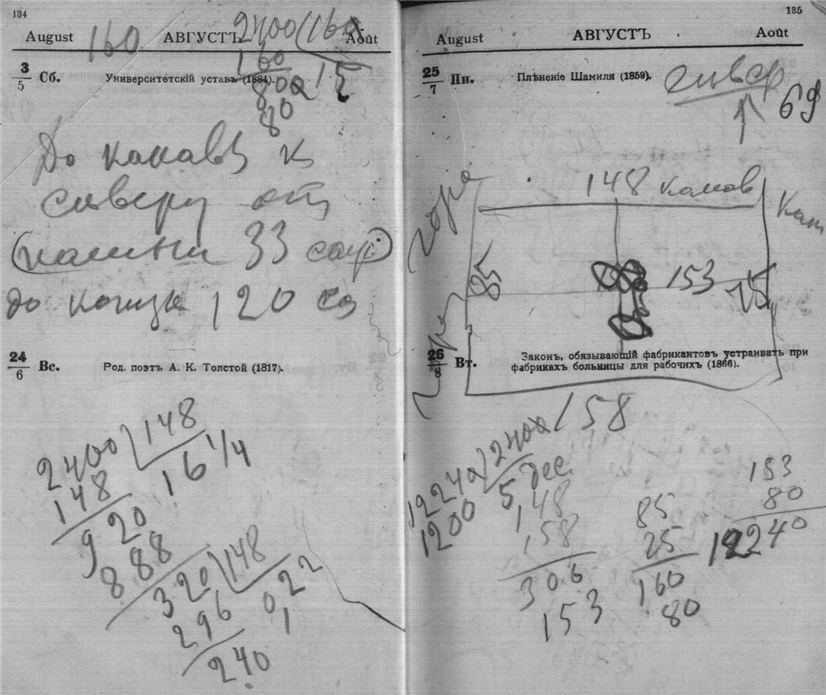 134
August АВГУСТЪ Août
160 2400 160
160 15
800
80
3/5 Сб. Университетскій уставъ (1884).
До канавы к
северу от
33 саж
до конца 120 са
24/6 Вс. Род. поэтъ А. К. Толстой (1817).
2400 148
148 16 1/4
920
888
320 148
296 022
240 1
135
August АВГУСТЪ Août
25/7 Пн. Плѣненіе Шамиля (1859).
север
69
148 канав
гора
Кан
85 153 75
гора
26/8 Вт. Законъ, обязывающій фабрикантовъ устраивать при
фабрикахъ больницы для рабочихъ (1866).
158
12240 2400
1200 5 дес
148
158
306
153
85
75
160
80
153
80
12240